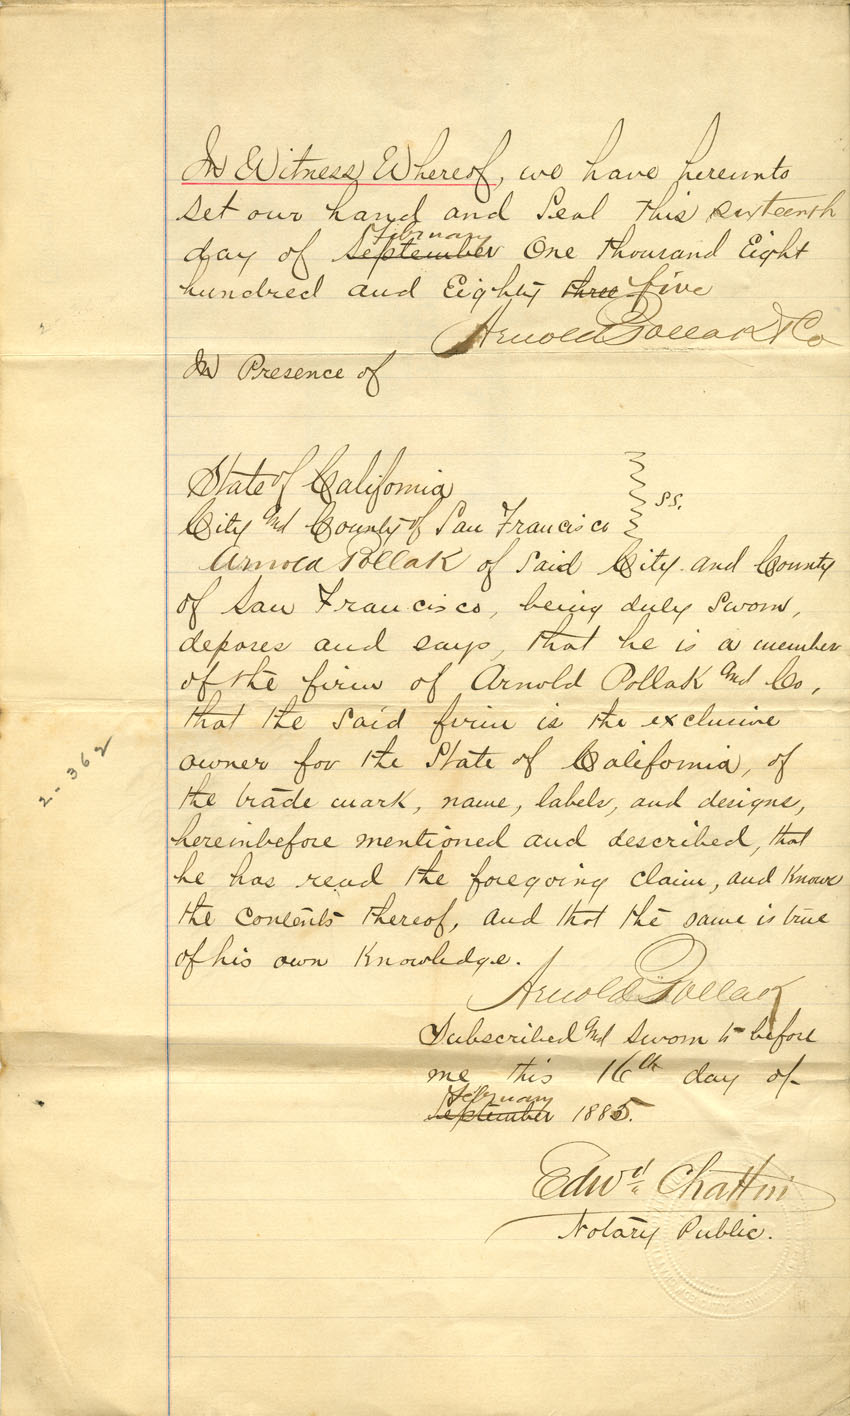 In Witness Whereof, we have hereunto
set our hand and Seal this sixteenth
February
day of September One thousand Eight
hundred and Eighty three five
Arnold Pollak & Co
In Presence of
State of California
City and County of San Francisco ss.
Arnold Pollak of said City and County
of San Francisco, being duly sworn,
deposes and says, that he is a member
of the firm of Arnold Pollak and Co,
that the said firm is the exclusive
owner for the State of California, of
the trade mark, name, labels, and designs,
hereinbefore mentioned and described, that
he has read the foregoing claim, and knows
the contents thereof, and that the same is true
of his own knowledge.
Arnold Pollak
Subscribed and sworn to before
me this 16th day of
February
September 1885.
Edwd Chattin
Notary Public.
2-362
2